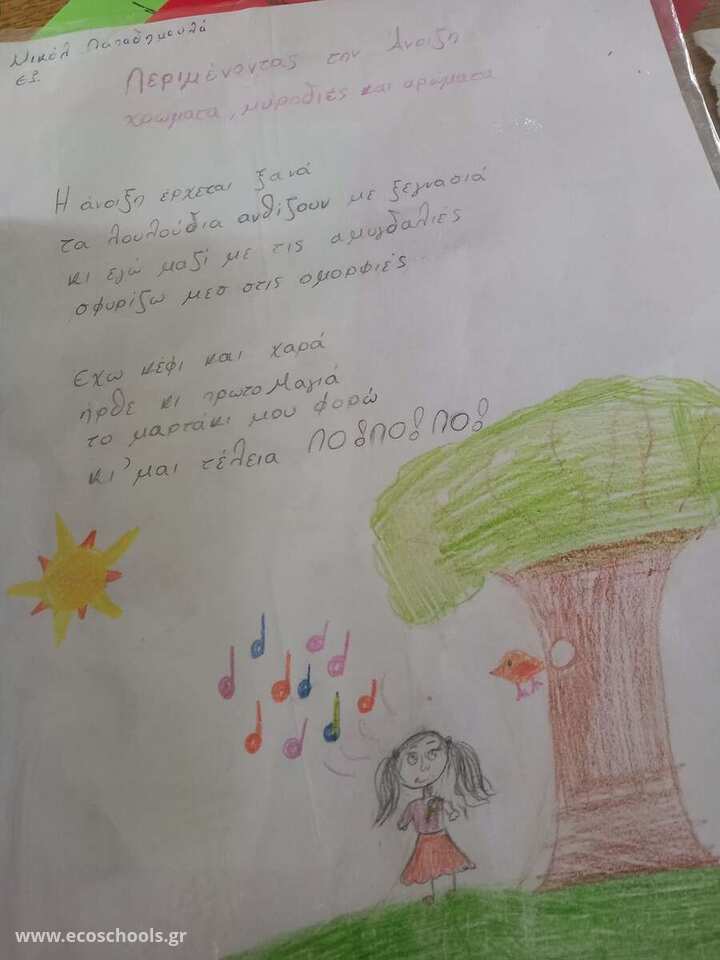 Νικόλ Παπαδημουλά
Ε3.
Περιμένοντας την Άνοιξη
χρώματα, μυρωδιές και αρώματα
Η άνοιξη έρχεται ξανά
τα λουλούδια ανθίζουν με ξεγνασιά
κι εγώ μαζί με τις αμυγδαλιές
σφυρίζω μεσ στις ομορφιές.
Έχω κέφι και χαρά
ήρθε κι πρωτομαγιά
το μαρτάκι μου φορώ
κι' μαι τέλεια ΠΟ! ΠΟ! ΠΟ!
www.ecoschools.gr